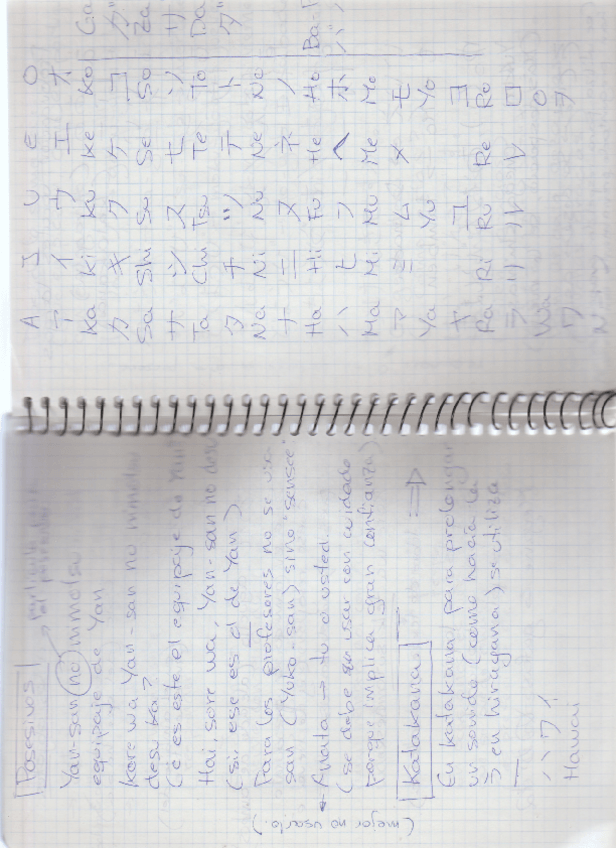 Posesivos
Yan-san no nimotsu
equipaje de Yan
Kore wa Yan-san no nimotsu
desu ka?
(¿es este el equipaje de Yan?
Hai sore wa, Yan-san no desu
(sí ese es el de Yan)
Para los profesores no se usa
san (Yoko-san) sino "sensee"
Anata → tú o usted.
(mejor no usarlo)
(se debe usar con cuidado
porque implica gran confianza)
Katakana ⇒
En katakana para prolongar
un sonido (como hacía la
う en hiragana) se utiliza
ー
ハワイ
Hawai
A I U E O
ア イ ウ エ オ
Ka Ki Ku Ke Ko Ga
カ キ ク ケ コ ガ
Sa Shi Su Se So Za
サ シ ス セ ソ ザ
Ta Chi Tsu Te To Da
タ チ ツ テ ト ダ
Na Ni Nu Ne No
ナ ニ ヌ ネ ノ
Ha Hi Fu He Ho Ba
ハ ヒ フ ヘ ホ バ
Ma Mi Mu Me Mo
マ ミ ム メ モ
Ya Yu Yo
ヤ ユ ヨ
Ra Ri Ru Re Ro
ラ リ ル レ ロ
Wa O
ワ ヲ
N